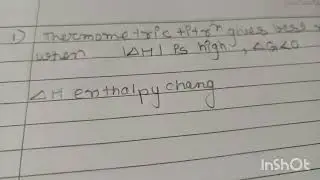 1) Thermometric titrn gives best
when |ΔH| is high, ΔG<0
ΔH enthalpy chang
InShOt